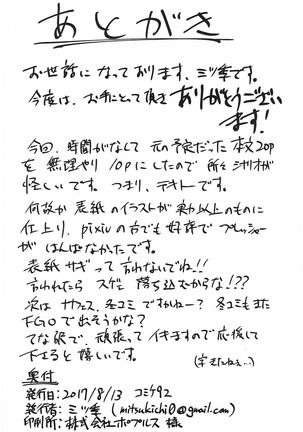 あとがき
お世話になっております、ミツ峯です。
今度は、お手にとって頂き ありがとうござい
ます!
今回、時間がなくて 元の予定だった本文20p
を 無理やり 10pにしたので 所々シナリオが
怪しいです。つまり、テキトーです。
何故か 表紙のイラストが 実力以上のものに
仕上り、pixivの方でも好評で プレッシャー
が はんぱなかったです。
表紙サギって 言わないでね!!
言われたら スゲー 落ち込むからな!??
次は サンクス、冬コミ ですかねー? 冬コミもまた
FGOで出そうかな?
てな訳で、頑張って イキますので応援して
下さると嬉しいです。
(字きたねぇ…)
奥付
発行日:2017/8/13 コミケ92
発行者:ミツ峯 (mitsukichi0@gmail.com)
印刷所:株式会社ポプルス 様